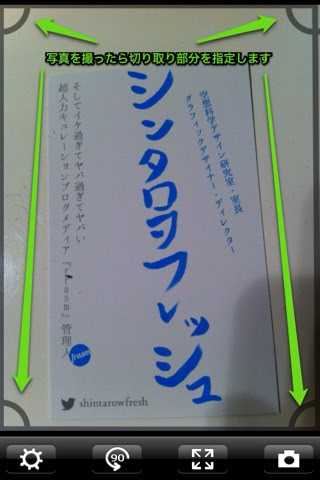 写真を撮ったら切り取り部分を指定します
空想科学デザイン研究室・室長
グラフィックデザイナー・ディレクター
シンタロヲフレッシュ
そしてイケ過ぎてヤバ過ぎてヤバい
超人力キュレーションブログメディア『frasm』管理人
frasm
shintarowfresh
90